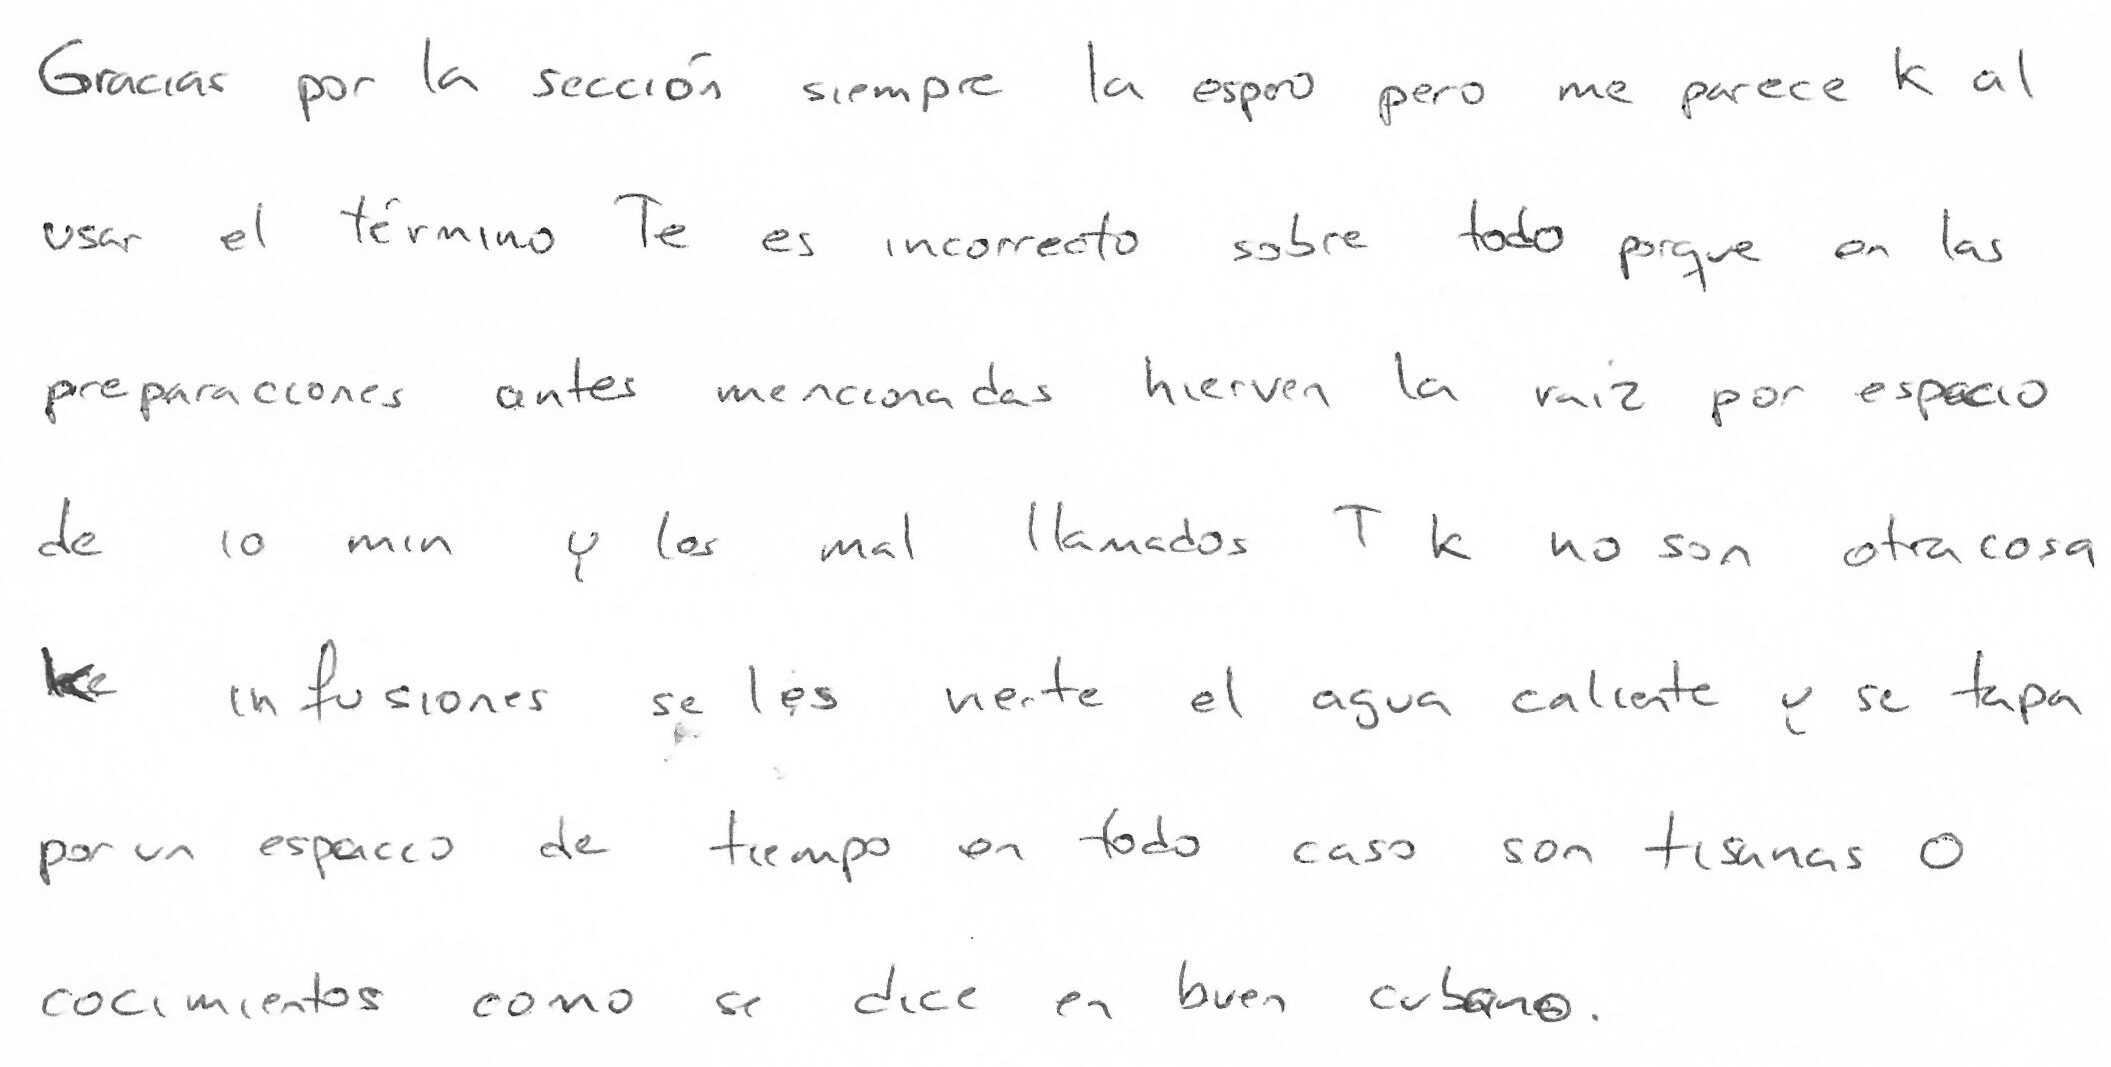 Gracias por la sección siempre la espero pero me parece k al
usar el término Te es incorrecto sobre todo porque en las
preparaciones antes mencionadas hierven la raiz por espacio
de 10 min y los mal llamados T k no son otra cosa
ke infusiones se les vierte el agua caliente y se tapa
por un espacio de tiempo en todo caso son tisanas o
cocimientos como se dice en buen cubano.